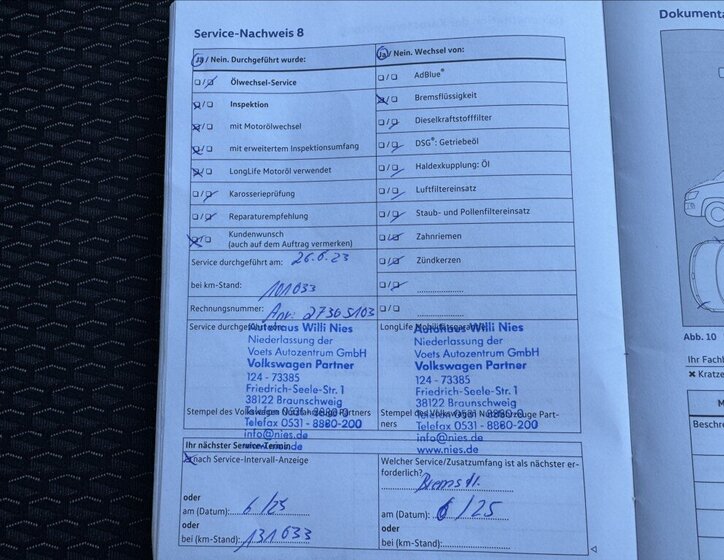 Service-Nachweis 8
Dokumenta
Ja / Nein. Durchgeführt wurde:
Ölwechsel-Service
Inspektion
mit Motorölwechsel
mit erweitertem Inspektionsumfang
LongLife Motoröl verwendet
Karosserieprüfung
Reparaturempfehlung
Kundenwunsch
(auch auf dem Auftrag vermerken)
Service durchgeführt am: 26.6.23
bei km-Stand: 101033
Rechnungsnummer: 27305103
Service durchgeführt
Autohaus Willi Nies
Niederlassung der
Voets Autozentrum GmbH
Volkswagen Partner
124 - 73385
Friedrich-Seele-Str. 1
38122 Braunschweig
Telefon 0531 - 8880-0
Stempel des Volkswagen Nutzfahrzeuge Partners
Telefax 0531 - 8880-200
info@nies.de
www.nies.de
Ja / Nein. Wechsel von:
AdBlue®
Bremsflüssigkeit
Dieselkraftstofffilter
DSG®: Getriebeöl
Haldexkupplung: Öl
Luftfiltereinsatz
Staub- und Pollenfiltereinsatz
Zahnriemen
Zündkerzen
LongLife Mobilitätsgarantie
Autohaus Willi Nies
Niederlassung der
Voets Autozentrum GmbH
Volkswagen Partner
124 - 73385
Friedrich-Seele-Str. 1
38122 Braunschweig
Telefon 0531 - 8880-0
Stempel des Volkswagen Nutzfahrzeuge Part-
ners
Telefax 0531 - 8880-200
info@nies.de
www.nies.de
Ihr nächster Service-Termin
nach Service-Intervall-Anzeige
oder
am (Datum): 6/25
oder
bei (km-Stand): 131033
Welcher Service/Zusatzumfang ist als nächster er-
forderlich?
Bremsfl.
am (Datum): 6/25
oder
bei (km-Stand):
Abb. 10
Ihr Fachb
Kratze
M
Beschre